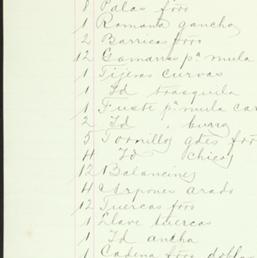 8 Palas fo̅o̅
1 Romana gancho
2 Barricas fo̅o̅
12 Gamarras pª mula
1 Tijeras curvas
1 Id trasquila
1 Fuste pª mula car
2 Id " burro
5 Tornillos gdes fo̅o̅
4 Id chicos
12 Balancines
4 Arpones arado
12 Tuercas fo̅o̅
1 Llave tuercas
1 Id ancha
1 Cadena fo̅o̅ dobl